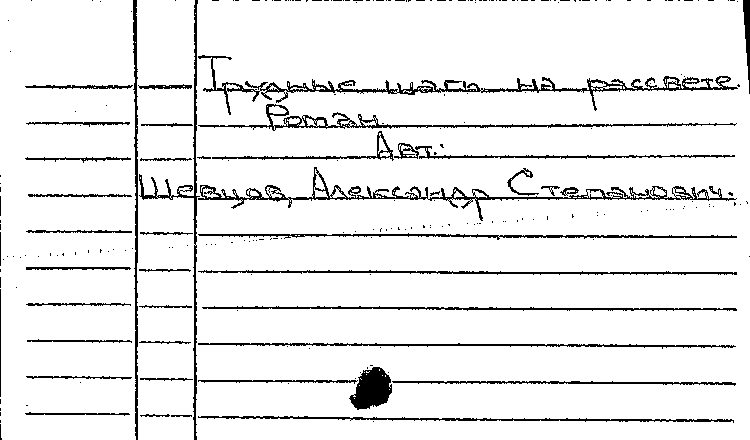 Трудные шаги на рассвете.
Роман
Авт.:
Шевцов, Александр Степанович.